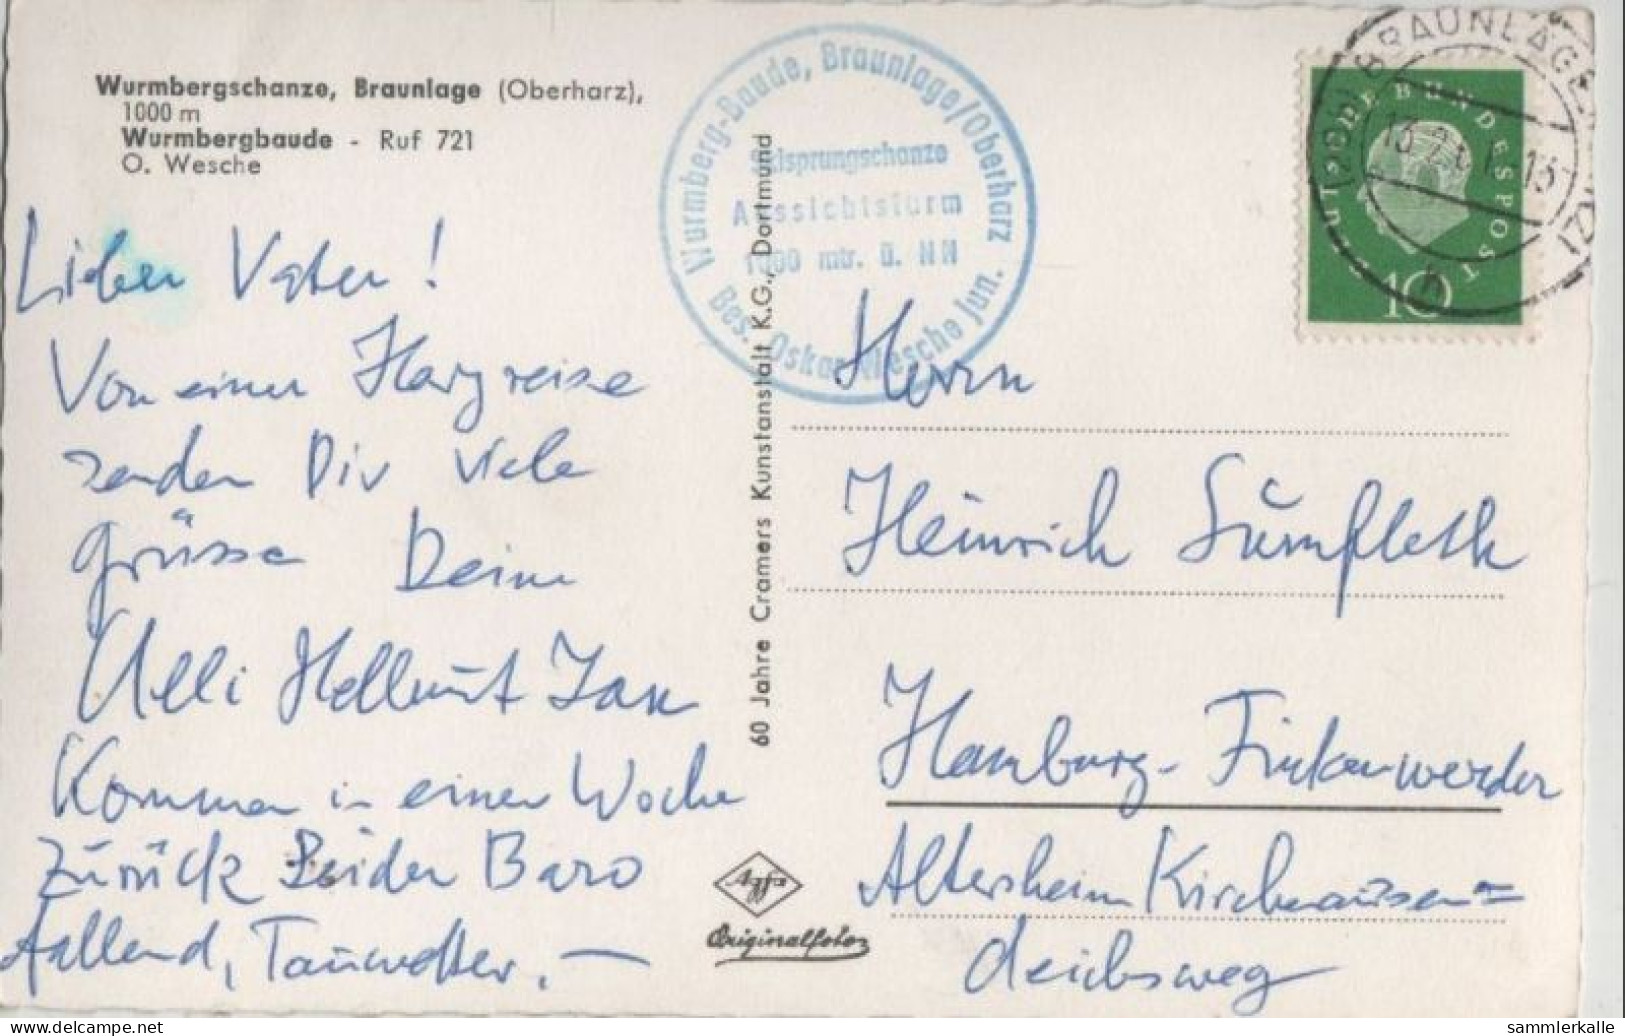 Wurmbergschanze, Braunlage (Oberharz),
1000 m
Wurmbergbaude - Ruf 721
O. Wesche
Lieber Vater!
Von einer Harzreise
senden Dir viele
Grüsse Deine
Uelli Hellmut Jan
Kommen in einer Woche
zurück Leider Baro
fallend, Tauwetter. —
60 Jahre Cramers Kunstanstalt K.G., Dortmund
Wurmberg-Baude, Braunlage/Oberharz
Skisprungschanze
Aussichtsturm
1000 mtr. ü. NN
Bes. Oskar Wesche jun.
BRAUNLAGE
13.2.61-13
h
DEUTSCHE BUNDESPOST
10
Herrn
Heinrich Sumfleth
Hamburg-Finkenwerder
Altersheim
deichsweg
Agfa
Originalfoto
sammlerkalle